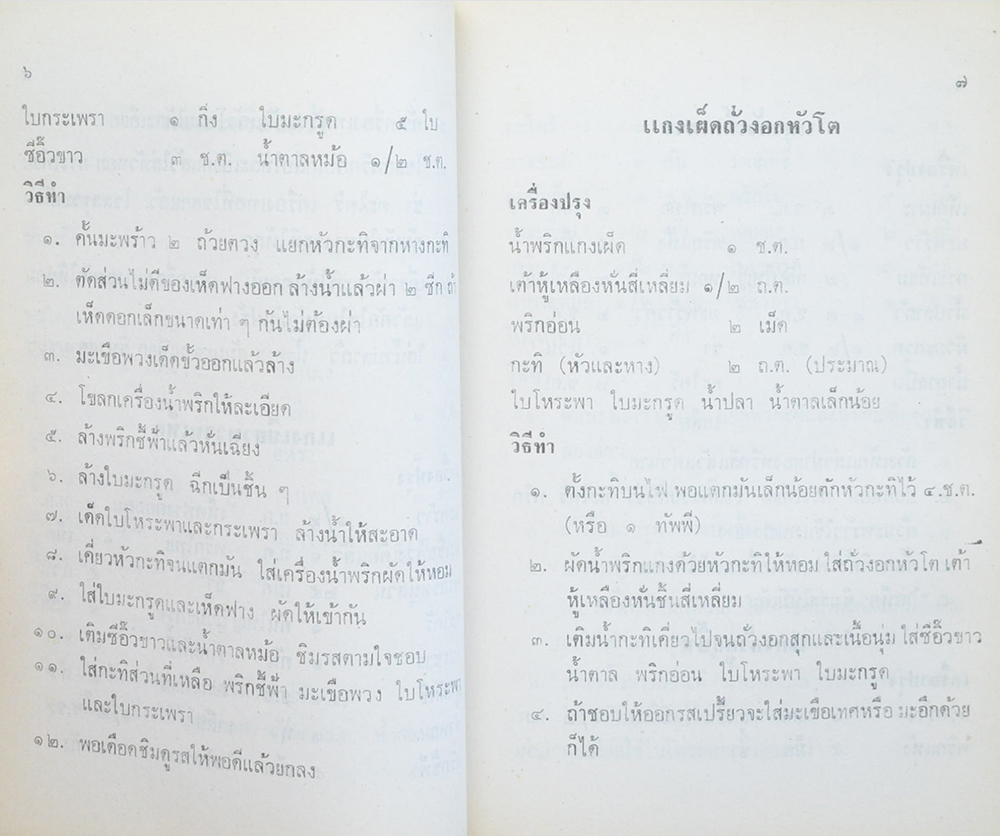 ๖
ใบกระเพรา ๑ กิ่ง ใบมะกรูด ๕ ใบ
ซีอิ๊วขาว ๓ ช.ต. น้ำตาลหม้อ ๑/๒ ช.ต.
วิธีทำ
๑. คั้นมะพร้าว ๒ ถ้วยตวง แยกหัวกะทิจากหางกะทิ
๒. ตัดส่วนไม่ดีของเห็ดฟางออก ล้างน้ำแล้วผ่า ๒ ซีก ถ้า
เห็ดดอกเล็กขนาดเท่า ๆ กันไม่ต้องผ่า
๓. มะเขือพวงเด็ดขั้วออกแล้วล้าง
๔. โขลกเครื่องน้ำพริกให้ละเอียด
๕. ล้างพริกชี้ฟ้าแล้วหั่นเฉียง
๖. ล้างใบมะกรูด ฉีกเป็นชิ้น ๆ
๗. เด็ดใบโหระพาและกระเพรา ล้างน้ำให้สะอาด
๘. เคี่ยวหัวกะทิจนแตกมัน ใส่เครื่องน้ำพริกผัดให้หอม
๙. ใส่ใบมะกรูดและเห็ดฟาง ผัดให้เข้ากัน
๑๐. เติมซีอิ๊วขาวและน้ำตาลหม้อ ชิมรสตามใจชอบ
๑๑. ใส่กะทิส่วนที่เหลือ พริกชี้ฟ้า มะเขือพวง ใบโหระพา
และใบกระเพรา
๑๒. พอเดือดชิมดูรสให้พอดีแล้วยกลง
๗
แกงเผ็ดถั่วงอกหัวโต
เครื่องปรุง
น้ำพริกแกงเผ็ด ๑ ช.ต.
เต้าหู้เหลืองหั่นสี่เหลี่ยม ๑/๒ ถ.ต.
พริกอ่อน ๒ เม็ด
กะทิ (หัวและหาง) ๒ ถ.ต. (ประมาณ)
ใบโหระพา ใบมะกรูด น้ำปลา น้ำตาลเล็กน้อย
วิธีทำ
๑. ตั้งกะทิบนไฟ พอแตกมันเล็กน้อยตักหัวกะทิไว้ ๔.ช.ต.
(หรือ ๑ ทัพพี)
๒. ผัดน้ำพริกแกงด้วยหัวกะทิให้หอม ใส่ถั่วงอกหัวโต เต้า
หู้เหลืองหั่นชิ้นสี่เหลี่ยม
๓. เติมน้ำกะทิเคี่ยวไปจนถั่วงอกสุกและเนื้อนุ่ม ใส่ซีอิ๊วขาว
น้ำตาล พริกอ่อน ใบโหระพา ใบมะกรูด
๔. ถ้าชอบให้ออกรสเปรี้ยวจะใส่มะเขือเทศหรือ มะอึกด้วย
ก็ได้